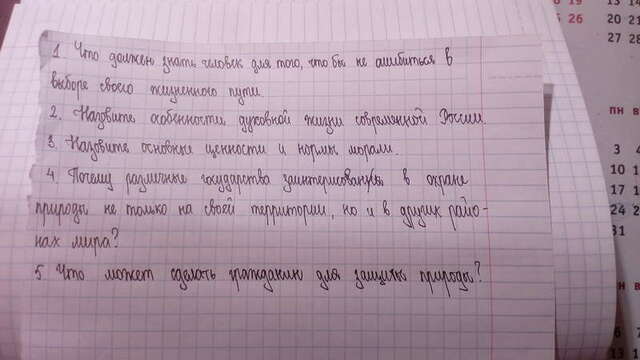 1. Что должен знать человек для того, что бы не ошибиться в
выборе своего жизненного пути
2. Назовите особенности духовной жизни современной России.
3. Назовите основные ценности и нормы морали.
4. Почему различные государства заинтерисованны в охране
природы не только на своей территории, но и в других райо-
нах мира?
5 Что может сделать гражданин для защиты природы?
19
26
13 14
20 21
27 28
пн в
3 4
10 1
17 1
24 2
31
пн в
6 7
13 1